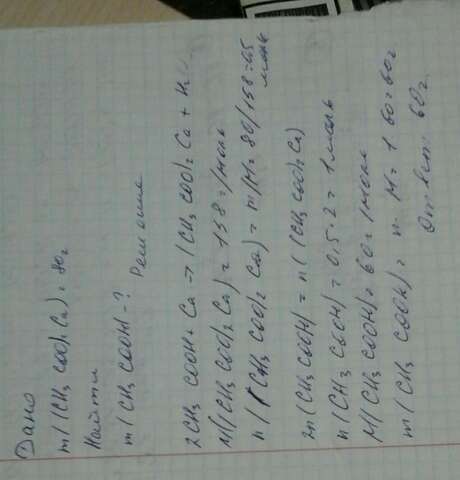 Дано
m((CH3 COO)2 Ca) = 80г
Найти
m(CH3 COOH) - ?
Решение
2CH3 COOH + Ca → (CH3 COO)2 Ca + H2
M((CH3 COO)2 Ca) = 158 г/моль
n((CH3 COO)2 Ca) = m/M = 80/158 = 0.5
моль
2n(CH3 COOH) = n((CH3 COO)2 Ca)
n(CH3 COOH) = 0.5 · 2 = 1 моль
M(CH3 COOH) = 60 г/моль
m(CH3 COOH) = n · M = 1 · 60 = 60г
Ответ: 60г.